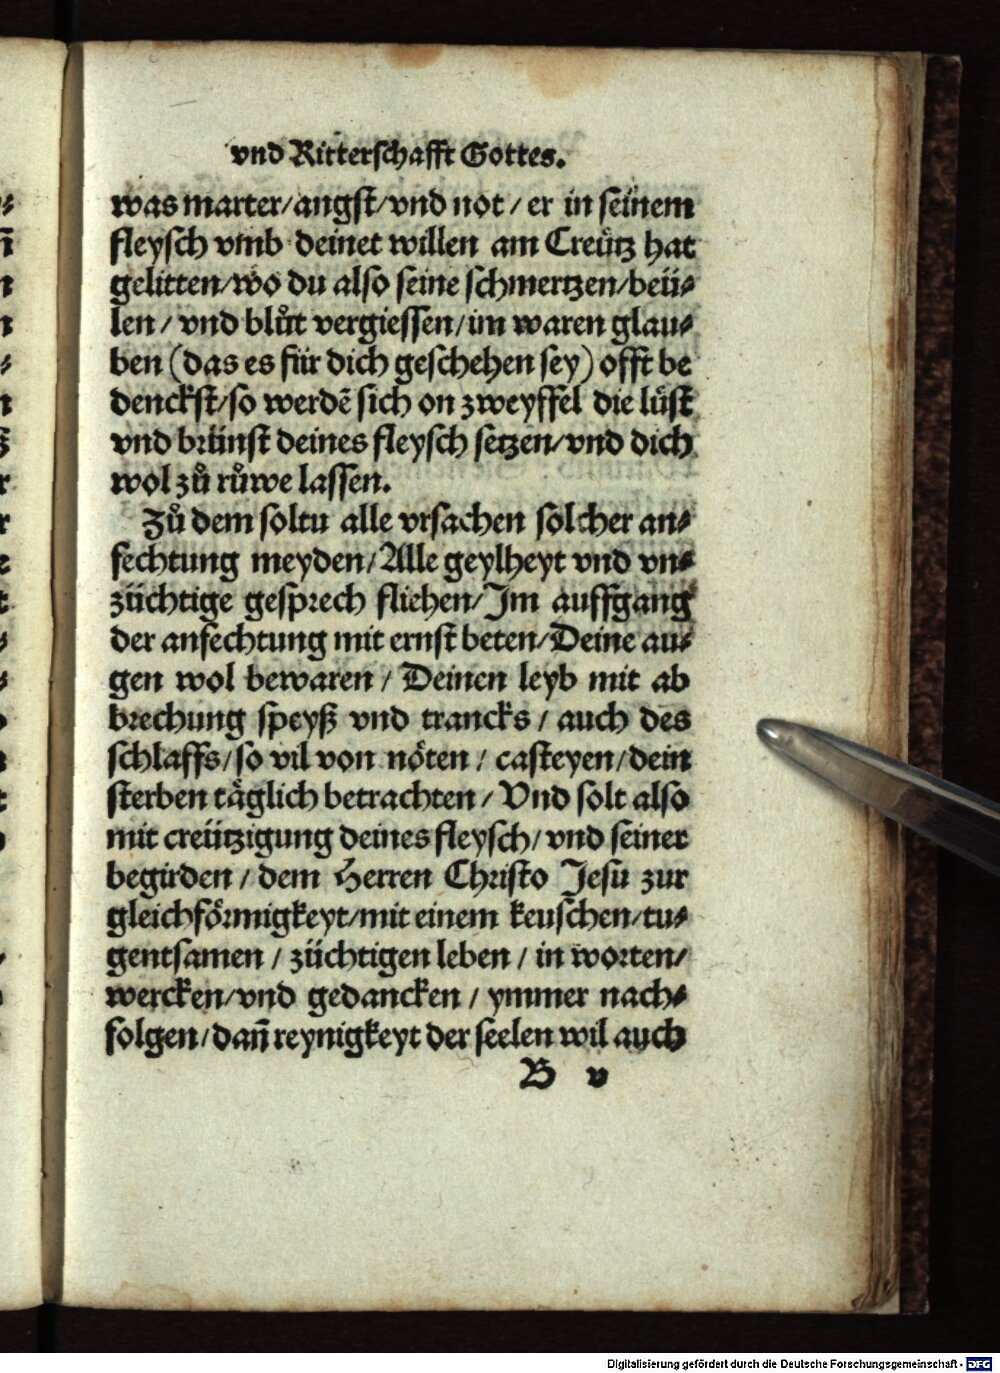 vnd Ritterschafft Gottes.
was marter/angst/vnd not / er in seinem
fleysch vmb deinet willen am Creütz hat
gelitten/wo du also seine schmertzen/beü⸗
len / vnd blůt vergiessen/im waren glau⸗
ben (das es für dich geschehen sey) offt be
denckst/so werdē sich on zweyffel die lüst
vnd brünst deines fleysch setzen/vnd dich
wol zů růwe lassen.
Zů dem soltu alle vrsachen solcher an⸗
fechtung meyden/Alle geylheyt vnd vn⸗
züchtige gesprech fliehen/Im auffgang
der anfechtung mit ernst beten/Deine au⸗
gen wol bewaren / Deinen leyb mit ab
brechung speyß vnd trancks / auch des
schlaffs/so vil von nöten / casteyen/dein
sterben täglich betrachten / Vnd solt also
mit creützigung deines fleysch/vnd seiner
begirden / dem Herren Christo Jesu zur
gleichförmigkeyt/mit einem keuschen/tu⸗
gentsamen / züchtigen leben / in worten/
wercken/vnd gedancken / ymmer nach⸗
folgen/dañ reynigkeyt der seelen wil auch
B v
Digitalisierung gefördert durch die Deutsche Forschungsgemeinschaft - DFG